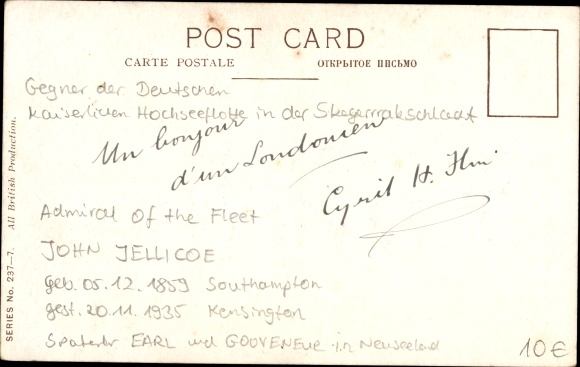 POST CARD
CARTE POSTALE
ОТКРЫТОЕ ПИСЬМО
Gegner der Deutschen
kaiserlichen Hochseeflotte in der Skagerrakschlacht
Un bonjour
d'un Londonien
Cyril H.
Admiral Of the Fleet
JOHN JELLICOE
geb. 05.12.1859 Southampton
gest. 20.11.1935 Kensington
Später EARL und GOUVENEUR in Neuseeland
10 €
SERIES No. 237–7. All British Production.